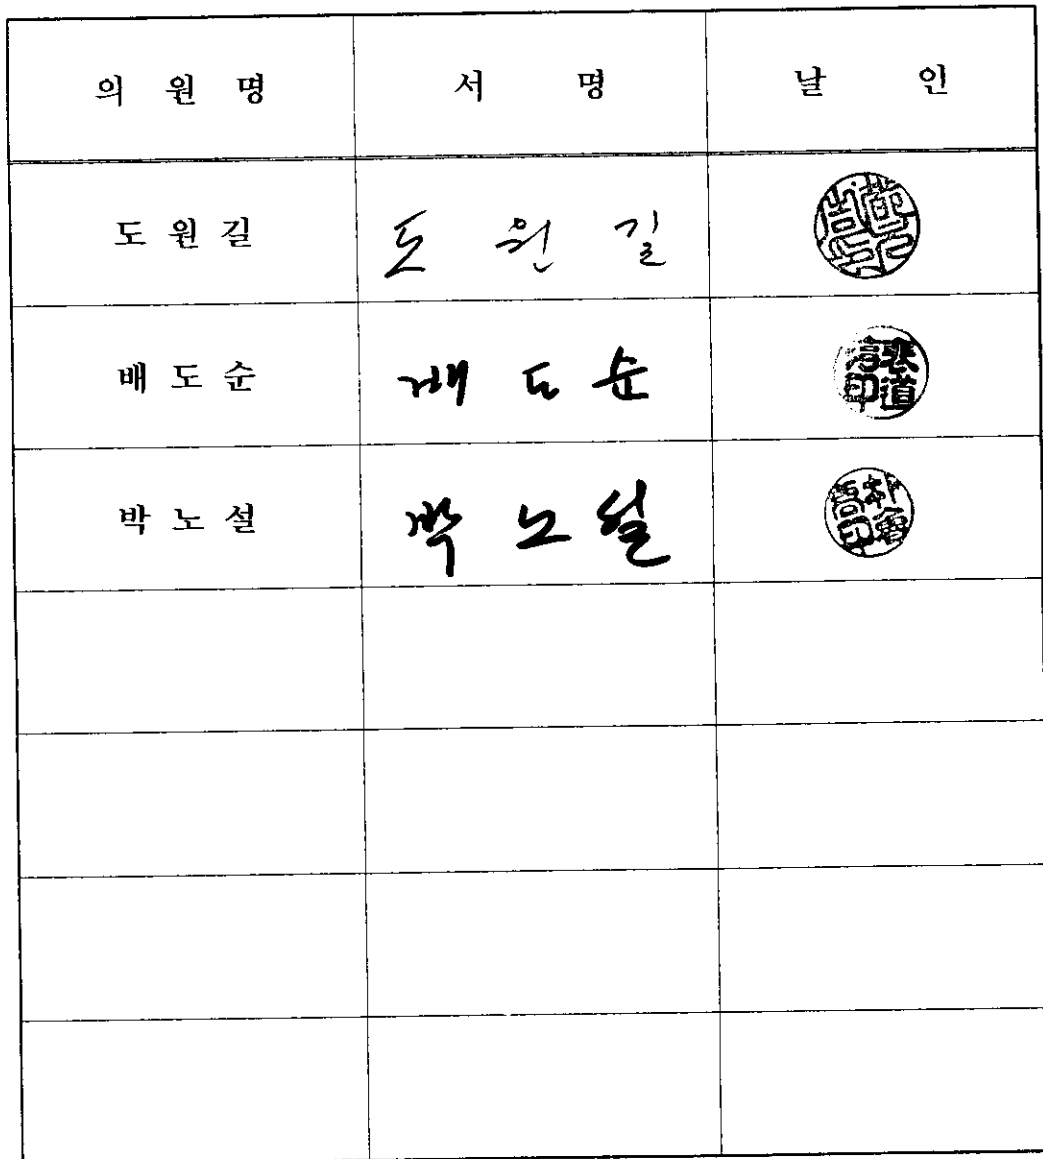 의 원 명 서 명 날 인
도 원 길 도 원 길
배 도 순 배 도 순 裵道淳印
박 노 설 박 노 설